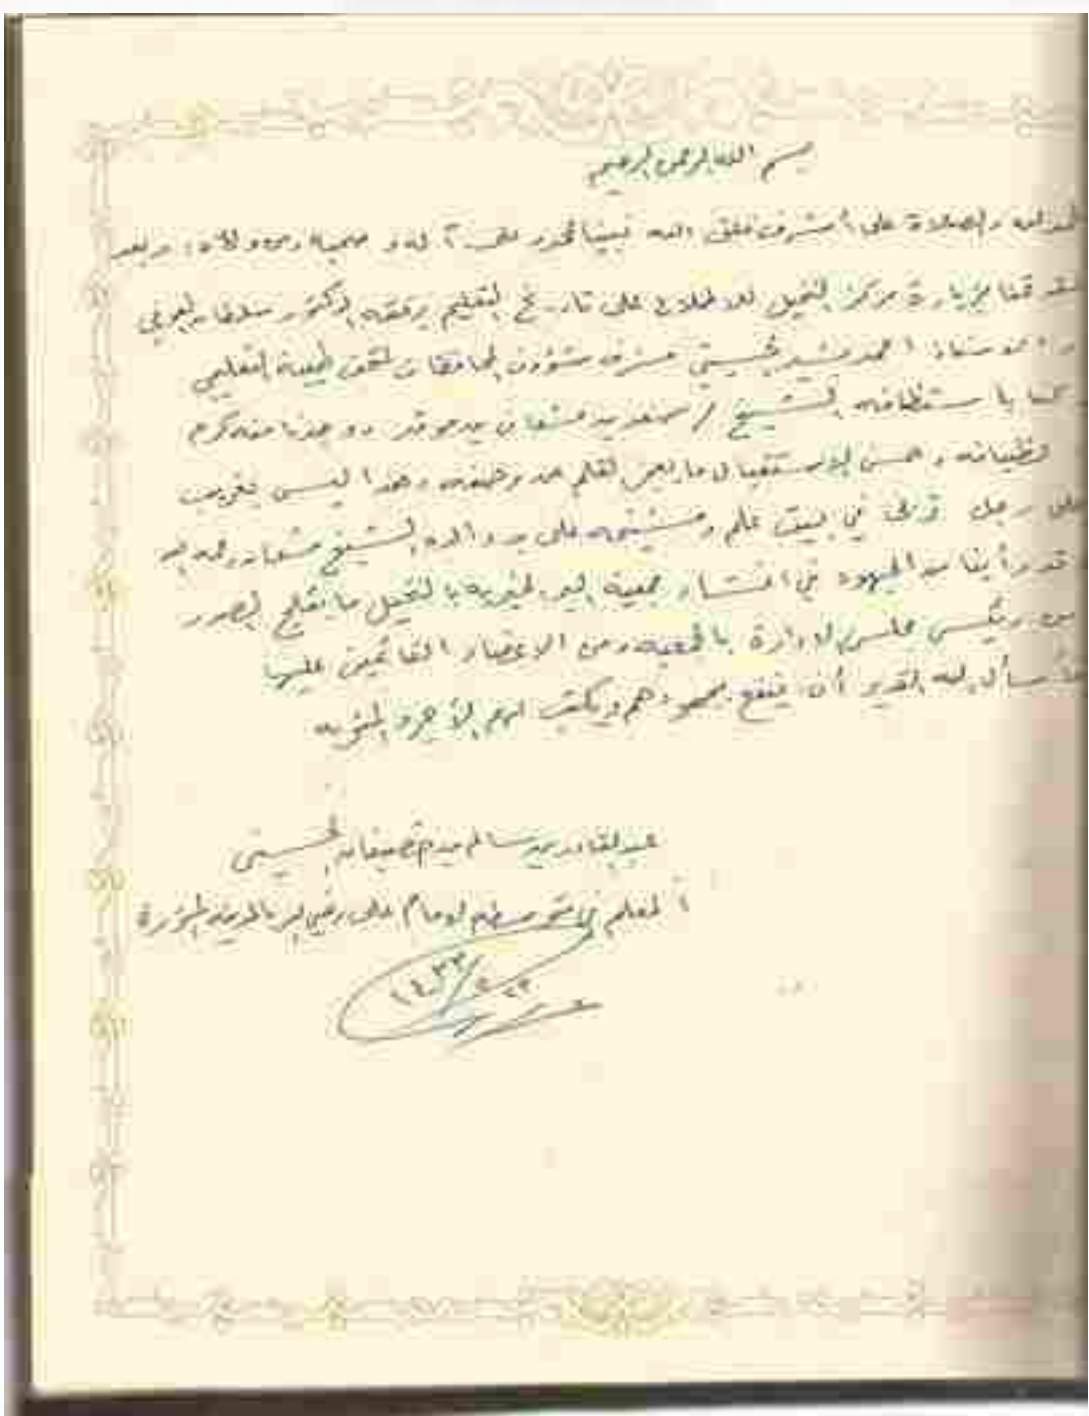 بسم الله الرحمن الرحيم
الحمد لله والصلاة على أشرف خلق الله نبينا محمد على آله وصحبه ومن والاه: وبعد
تشرفنا بزيارة مركز النخيل للاطلاع على تاريخ التعليم برفقة الدكتور سلطان
أحمد مشرف شؤون المحافظات التعليمي
باستضافة الشيخ / بن مشعان بن ووجدنا منه كرم
الضيافة وحسن الاستقبال ما يعجز القلم عن وصفه وهذا ليس بغريب
على رجل تربى في بيت علم على يد والده الشيخ مشعان رحمه الله
وقد رأينا من الجهود في جمعية البر الخيرية بالنخيل ما يثلج الصدور
من رئيس مجلس الإدارة بالجمعية ومن الأعضاء القائمين عليها
أسأل الله القدير أن ينفع بجهودهم ويكتب لهم الأجر والمثوبة
عبدالقادر بن سالم بن
المعلم في متوسطة الإمام علي رضي الله بالمدينة المنورة
١٤٣٣/